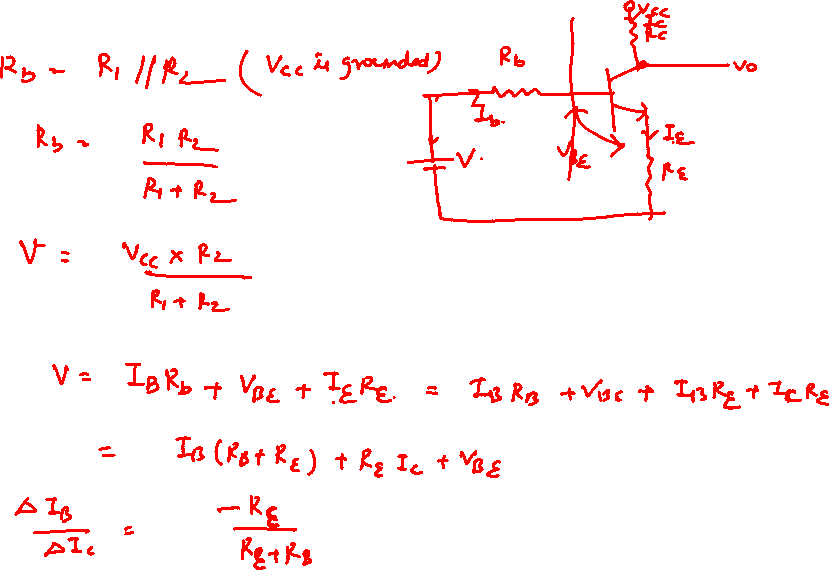 R_b = R_1 // R_2 ( V_cc is grounded)
R_b = R_1 R_2 / R_1 + R_2
V = V_cc x R_2 / R_1 + R_2
V_cc
R_c
R_b
V_o
I_b.
V.
V_BE
I_E
R_E
V = I_B R_b + V_BE + I_E R_E. = I_B R_B + V_BE + I_B R_E + I_C R_E
= I_B (R_B + R_E) + R_E I_C + V_BE
Δ I_B / Δ I_C = - R_E / R_E + R_B